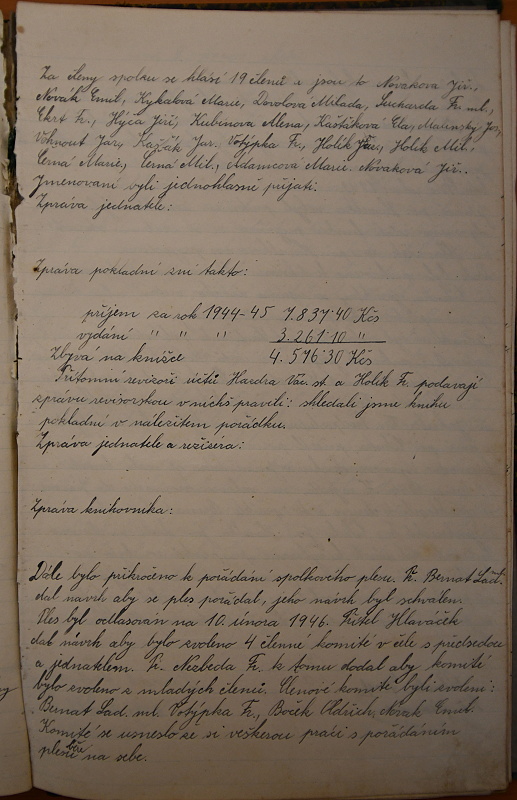 Za členy spolku se hlásí 19 členů a jsou to Novakova Jiř.,
Novák Emil, Kykalová Marie, Dorolova Milada, Sucharda Fr. ml.,
Ckrt Fr., Hýča Jiří, Kubinova Alena, Kašťáková Vlas, Malinský Jos,
Vohnout Jar, Kazák Jar. Votýpka Fr., Holík Jar, Holík Mil.
Černá Marie, Černá Mil., Adamcová Marie. Novaková Jiř..
Jmenovaní byli jednohlasně přijati.
Zpráva jednatele:
Zpráva pokladní zní takto:
příjem za rok 1944-45 7.837·40 Kčs
vydání " " " 3.261·10 "
Zbývá na knížce 4.576·30 Kčs
Přítomní revizoři účtů Haudra Vác. st. a Holík Fr. podavají
zprávu revisorskou v níchž pravili: shledali jsme knihu
pokladní v náležitém pořádku.
Zpráva jednatele a režiséra:
Zpráva knihovníka:
Dále bylo přikročeno k pořádání spolkového plesu. Př. Bernat Lad. ml.
dal navrh aby se ples pořádal, jeho návrh byl schvalem
Ples byl odlasován na 10. února 1946. Přítel Hlaváček
dal návrh aby bylo zvoleno 4 členné komité v čele s předsedou
a jednatelem. Př. Nezbeda Fr. k tomu dodal aby komité
bylo zvoleno z mladých členů. Členové komité byli zvoleni:
Bernat Lad. ml. Votýpka Fr., Boček Oldřich, Novak Emil.
Komité se usneslo že si veškerou praci s pořádáním
plesu bře na sebe.